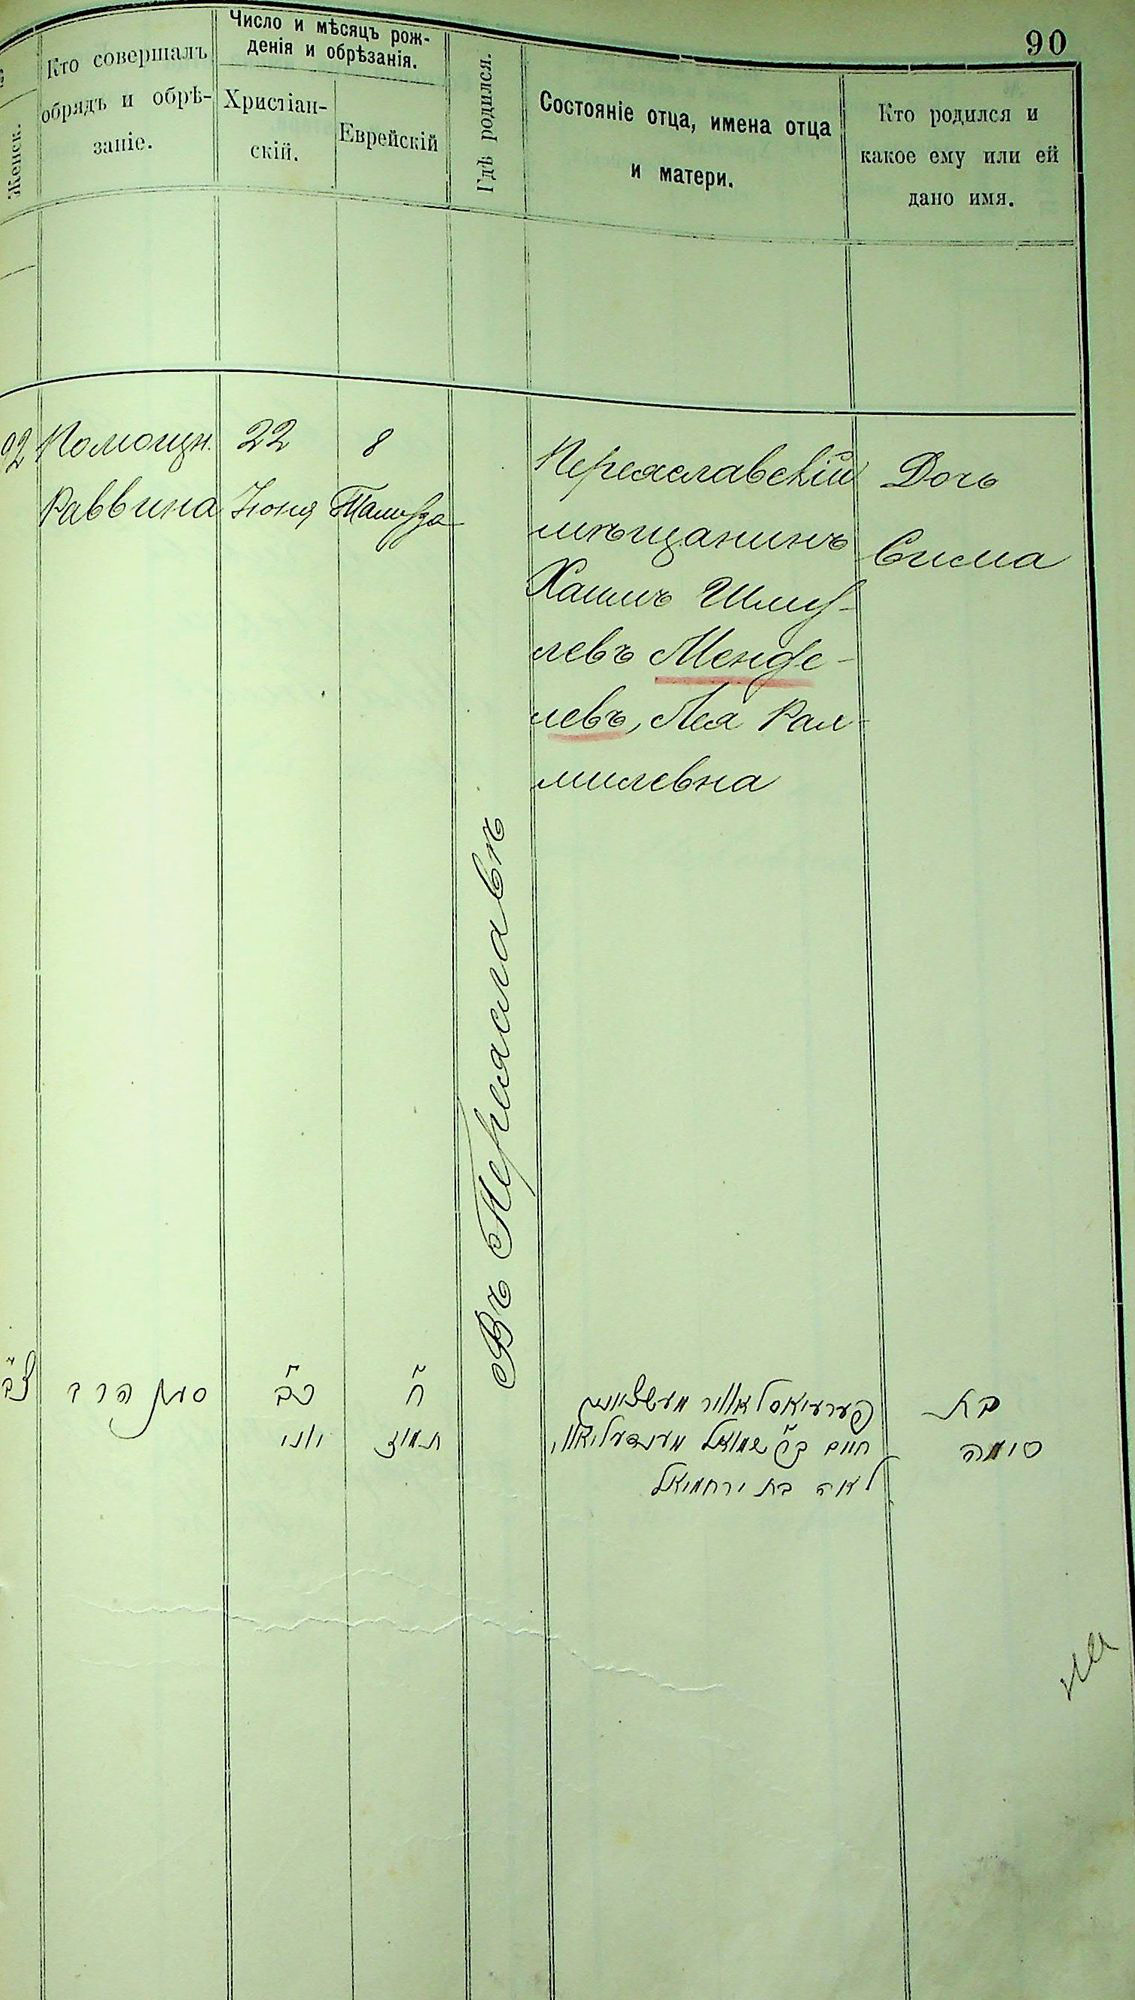 90
Женск.
Кто совершалъ
обрядъ и обрѣ-
заніе.
Число и мѣсяцъ рож-
денія и обрѣзанія.
Христіан-
скій.
Еврейскій
Гдѣ родился.
Состояніе отца, имена отца
и матери.
Кто родился и
какое ему или ей
дано имя.
92
Помощн.
Раввина
22
Іюня
8
Тамуза
Въ Переяславѣ
Переяславскій
мѣщанинъ
Хаимъ Шму-
левъ Менде-
левъ, Лея Рах-
милевна
Дочь
Сима
צ״ב
סגן הרב
כ״ב
יוני
ח׳
תמוז
פערעיאסלאווער מעשצאנין
חיים ב״ר שמואל מענדעליאוו,
לאה בת ירחמיאל
בת
סימה